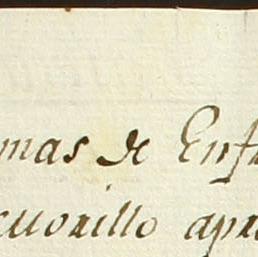 mas de Enf
cuorillo apr